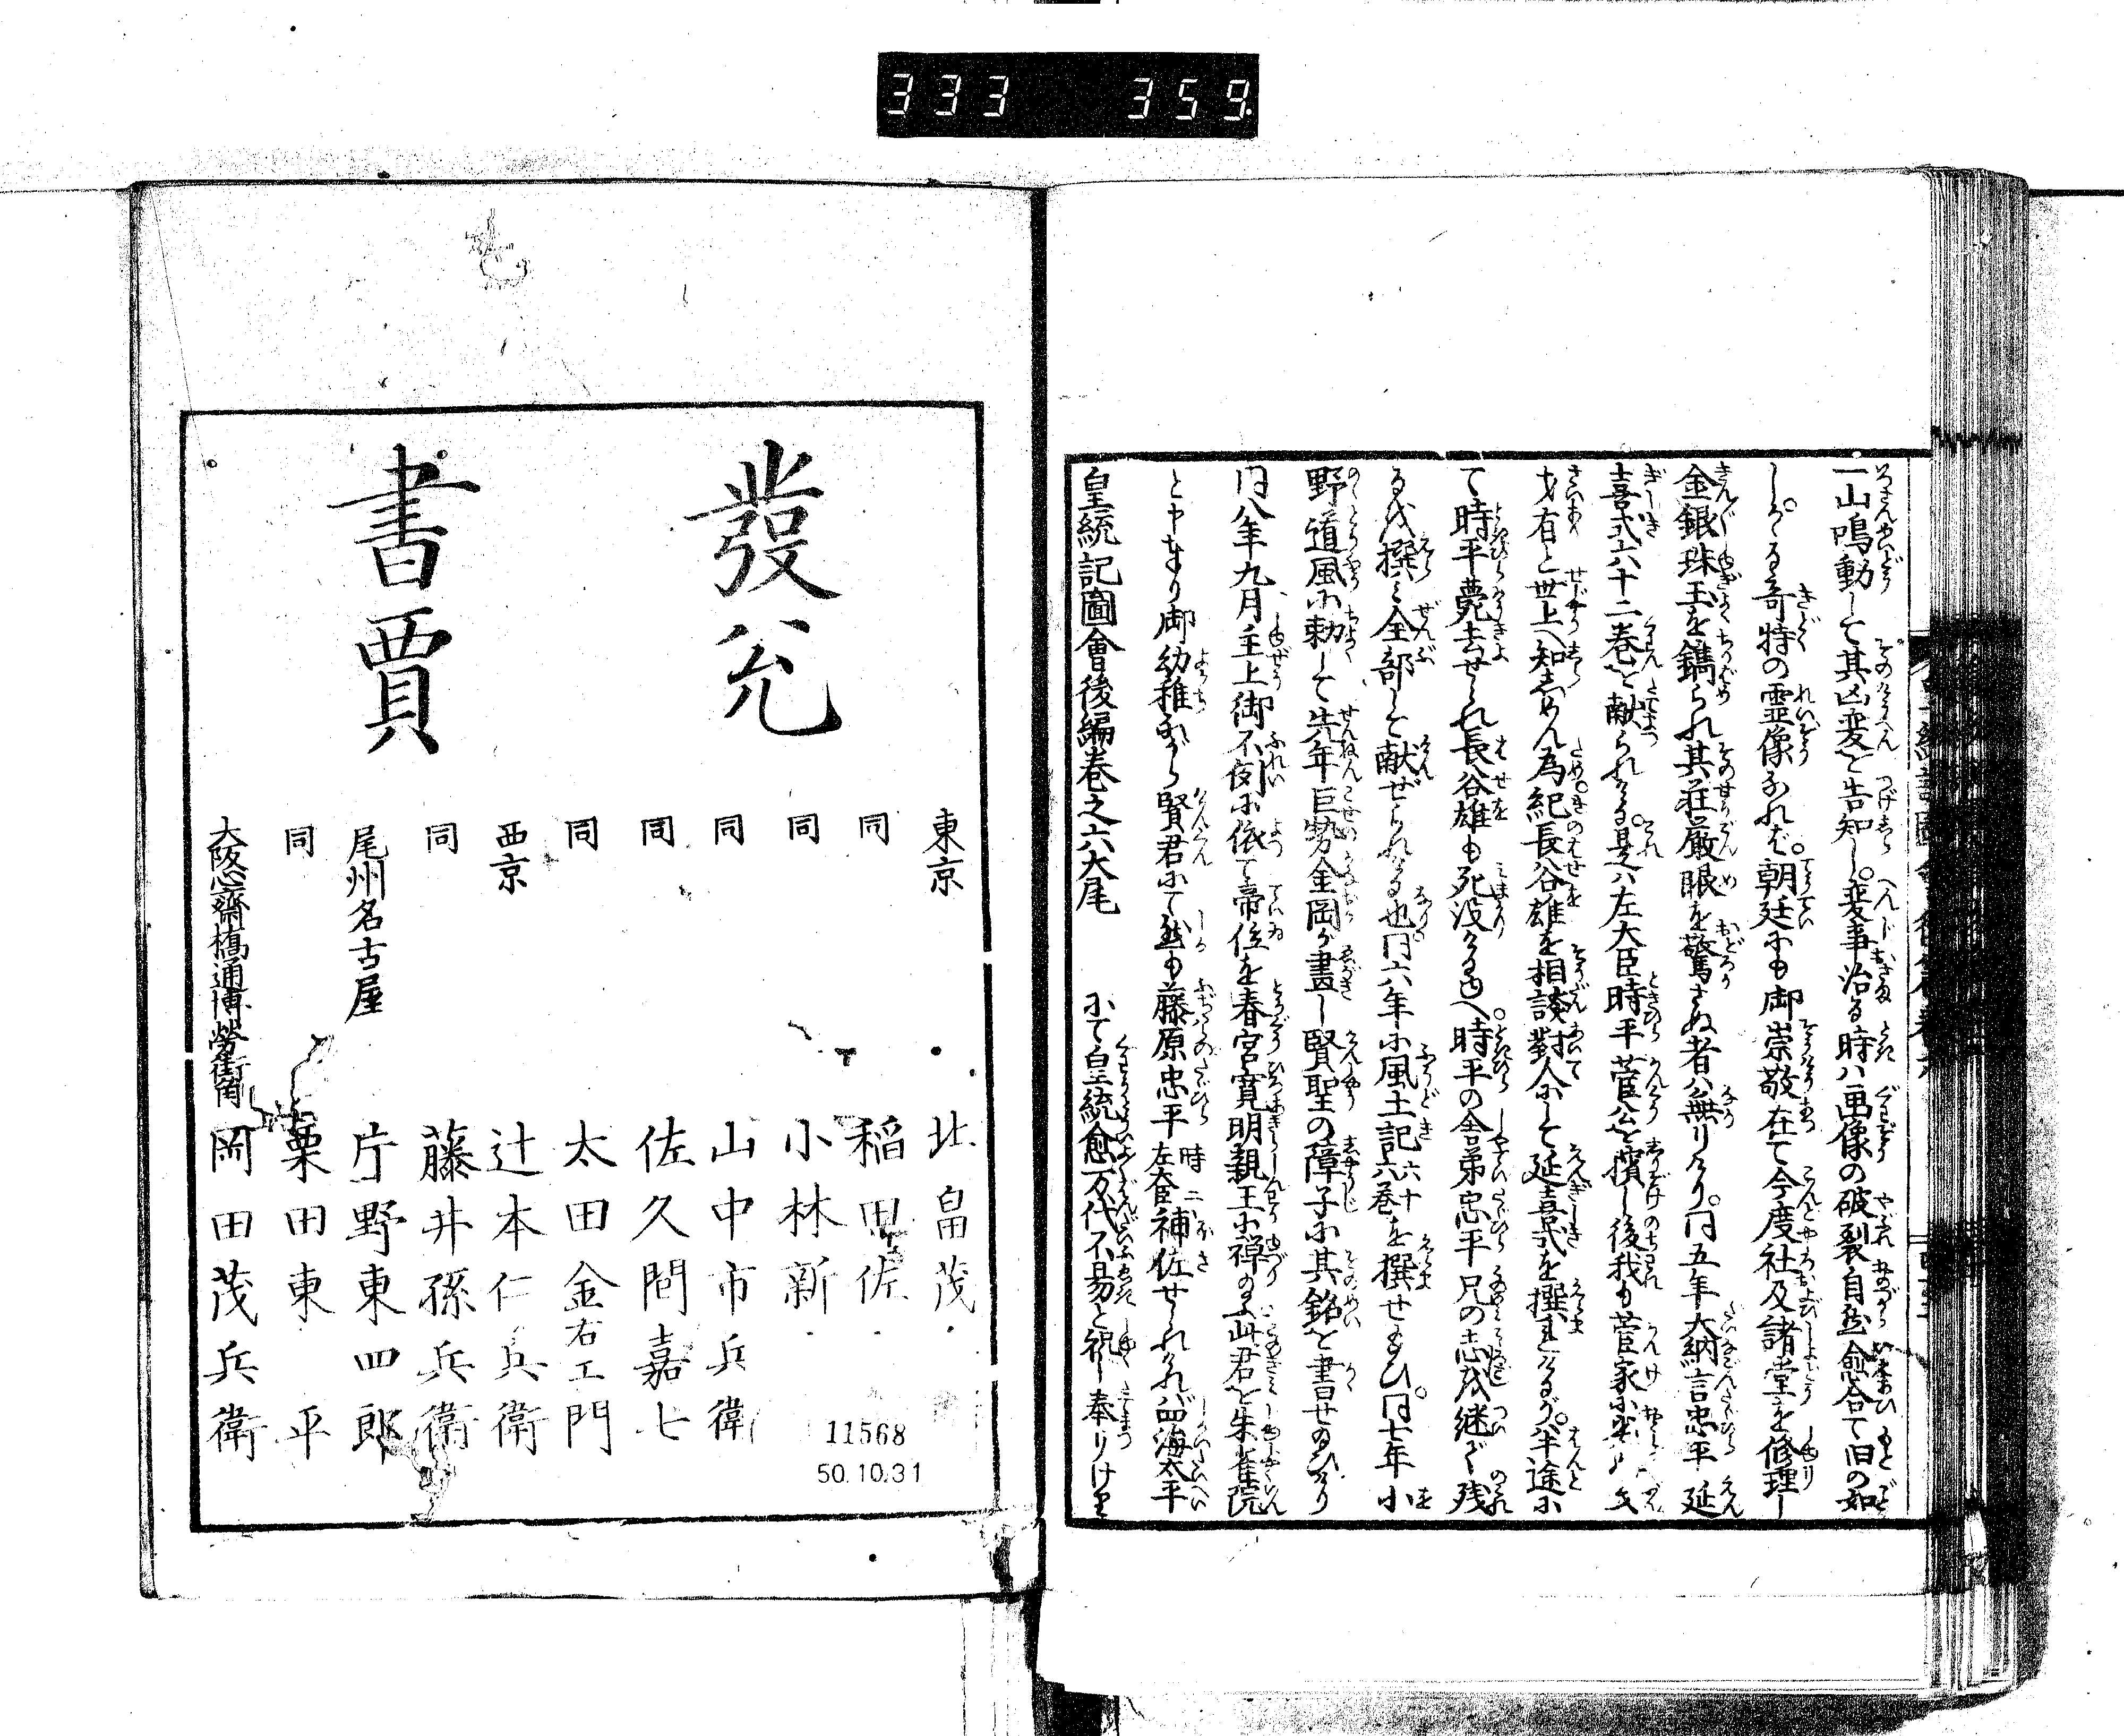 333 359
一山鳴動して其凶変を告知し。変事治る時ハ画像の破裂自然愈合て旧の如
しかゝる奇特の霊像なれバ。朝廷にも御崇敬在て今度社及諸堂を修理し
金銀珠玉を鏤られ其荘厳眼を驚さぬ者ハ無りけり。同五年大納言忠平延
喜式六十二巻を献られける。是ハ左大臣時平菅公を擯し後我も菅家に
才有と世上へ知しめん為紀長谷雄を相談対人にして延喜式を撰まれけるが。半途に
て時平薨去せられ長谷雄も死没けるゆへ時平の舎弟忠平兄の志を継ぎ残
るを撰ミ全部して献ぜられける也。同六年に風土記六十六巻を撰せ給ひ。同七年小
野道風に勅して先年巨勢金岡が畫し賢聖の障子に其銘を書せ給ひけり
同八年九月主上御不例に依て帝位を春宮寛明親王に禅り給ふ此君を朱雀院
と申奉り御幼稚ながら賢君にて然も藤原忠平 時ニ左大臣 補佐せられけれバ四海太平
にて皇統愈万代不易と祝し奉りけり
皇統記圖會後編巻之六大尾
發兌
書賈
東京 北畠茂
同 稲田佐
同 小林新
同 山中市兵衛
同 佐久間嘉七
同 太田金右エ門
西京 辻本仁兵衛
同 藤井孫兵衛
尾州名古屋 片野東四郎
同 栗田東平
大阪心齋橋通博勞街角 岡田茂兵衛
11568
50.10.31